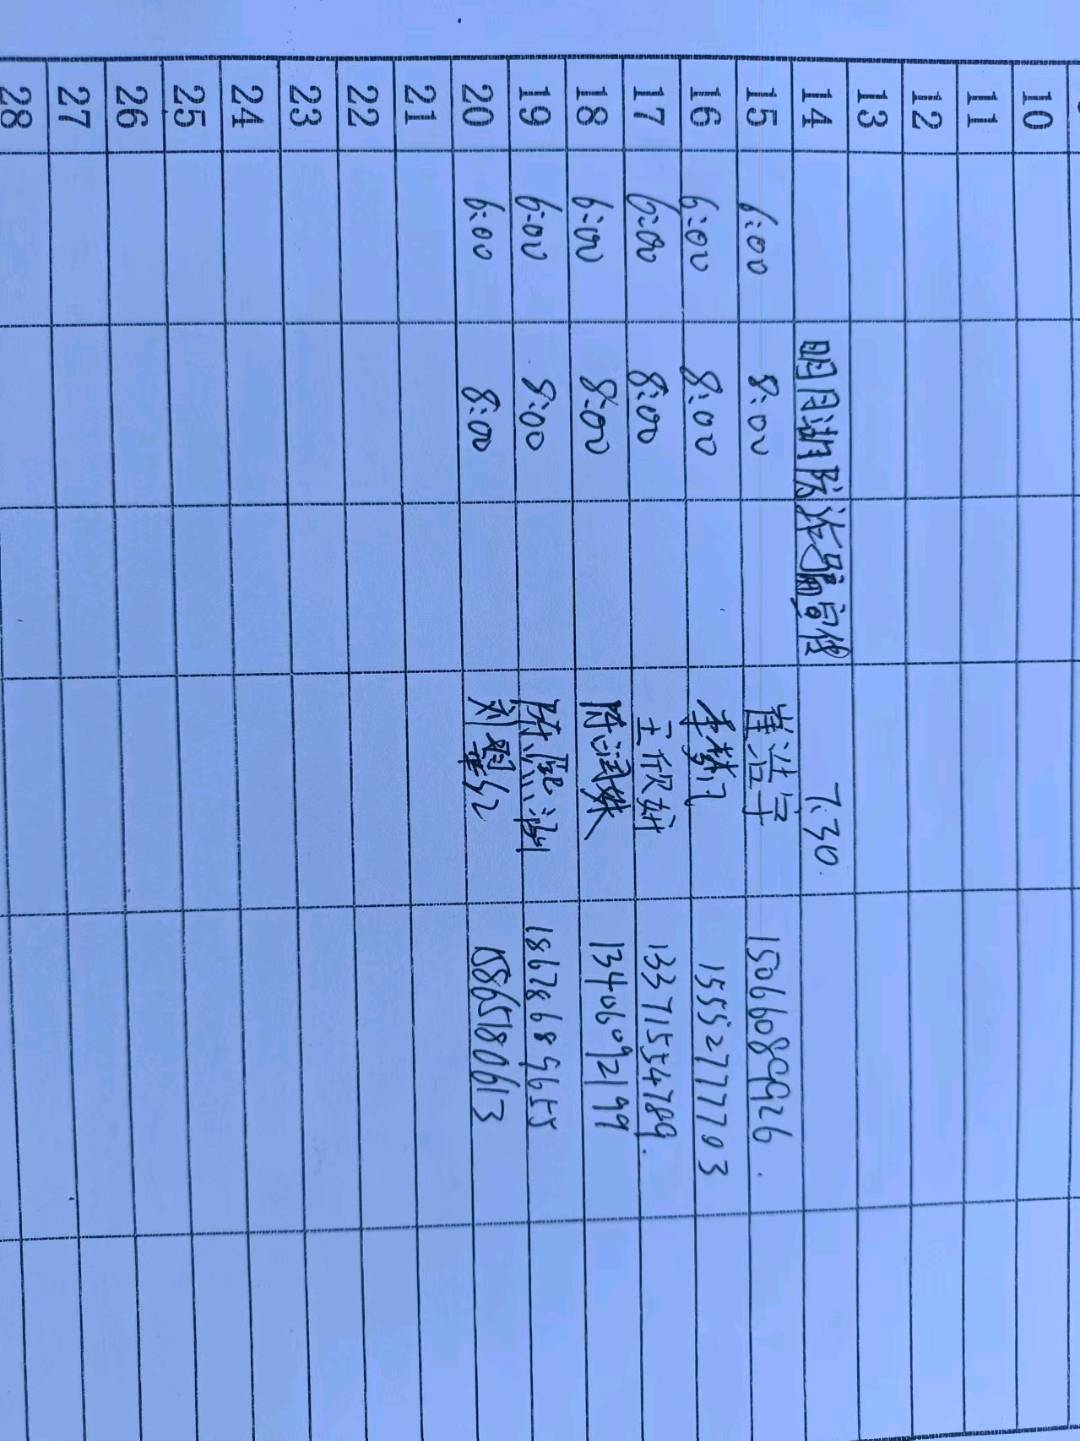 10
11
12
13
14 明月湖防诈骗宣传 7:30
15 6:00 8:00 崔浩宇 15066089926
16 6:00 8:00 李梦 15552777703
17 6:00 8:00 王欣妍 13371554789
18 6:00 8:00 陈润姝 13406092199
19 6:00 8:00 陈熙 18678689655
20 6:00 8:00 刘翠红 15865180613
21
22
23
24
25
26
27
28